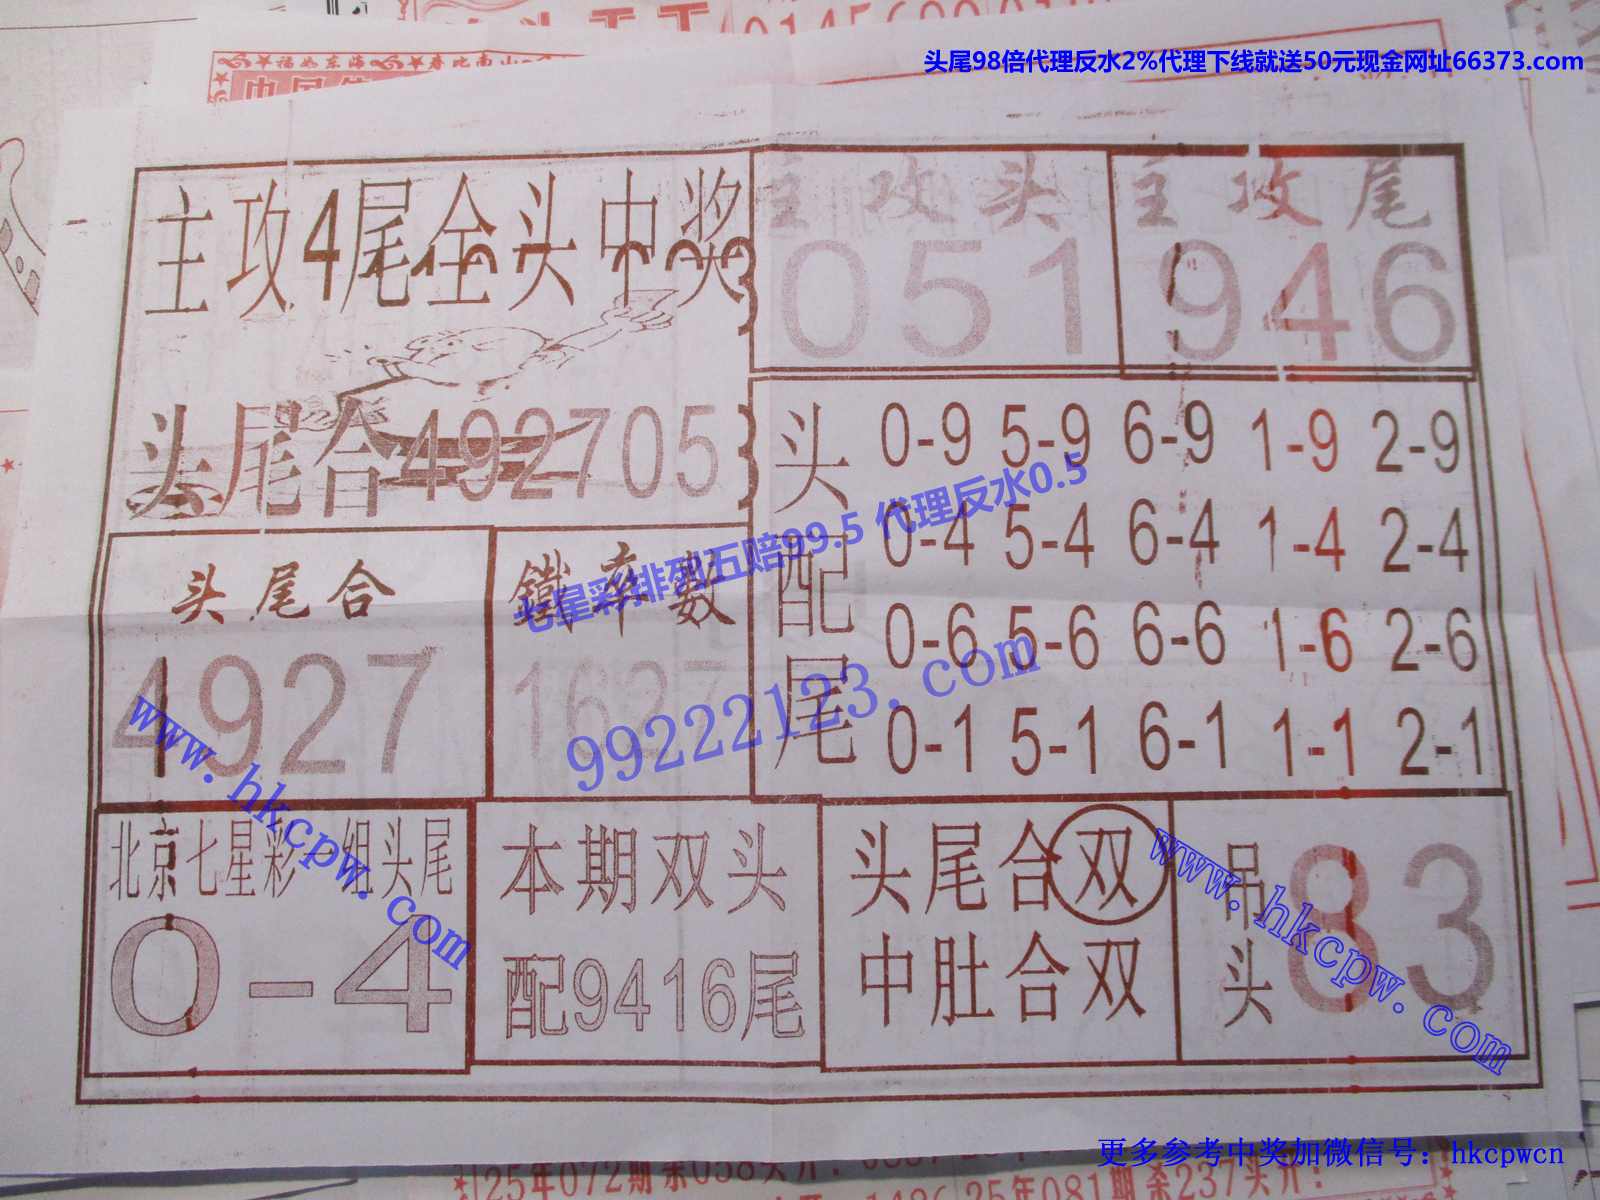 头尾98倍代理反水2%代理下线就送50元现金网址66373.com
福如东海
寿比南山
主攻4尾全头中奖
主攻头
051
主攻尾
946
头尾合492705
头配尾
0-9 5-9 6-9 1-9 2-9
0-4 5-4 6-4 1-4 2-4
0-6 5-6 6-6 1-6 2-6
0-1 5-1 6-1 1-1 2-1
七星彩排列五赔99.5 代理反水0.5
99222123.com
头尾合
4927
鐵率数
1627
www.hkcpw.com
北京七星彩一组头尾
0-4
本期双头
配9416尾
头尾合双
中肚合双
吊头
83
www.hkcpw.com
更多参考中奖加微信号：hkcpwcn
25年072期杀058头开：
25年081期杀237头开：